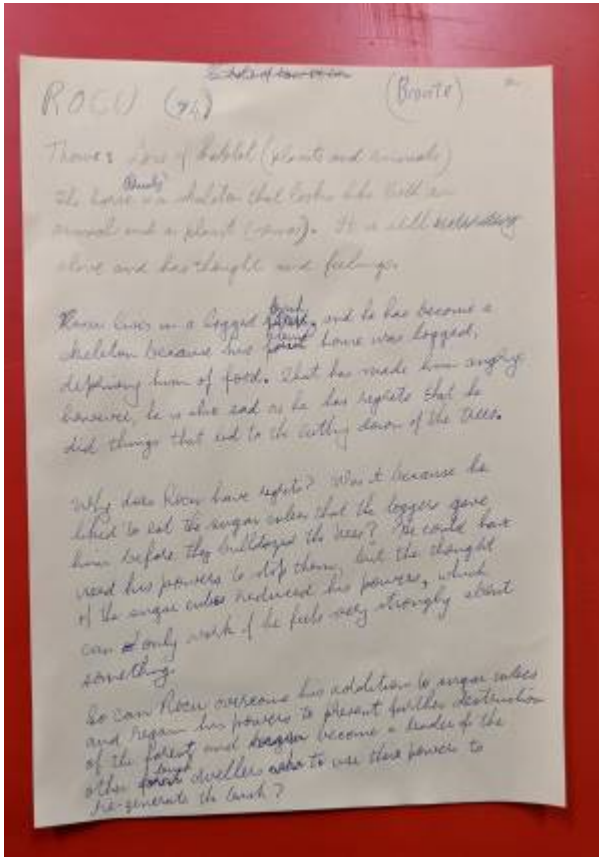 ROCU (Bronte)
Theme: Loss of habitat (plants and animals)
The horse is a skeleton that looks like both an
animal and a plant. It is still
alive and has thought and feelings.
Rocu lives in a logged bush, and he has become a
skeleton because his home was logged,
depriving him of food. That has made him angry
however, he is also sad as he has regrets that he
did things that led to the cutting down of the trees.
Why does Rocu have regrets? Was it because he
liked to eat the sugar cubes that the loggers gave
him before they bulldozed the trees? He could have
used his powers to stop them, but the thought
of the sugar cubes reduced his powers, which
can only work if he feels very strongly about
something.
So can Rocu overcome his addiction to sugar cubes
and regain his powers to prevent further destruction
of the forest, and become a leader of the
other bush dwellers to use their powers to
re-generate the bush?